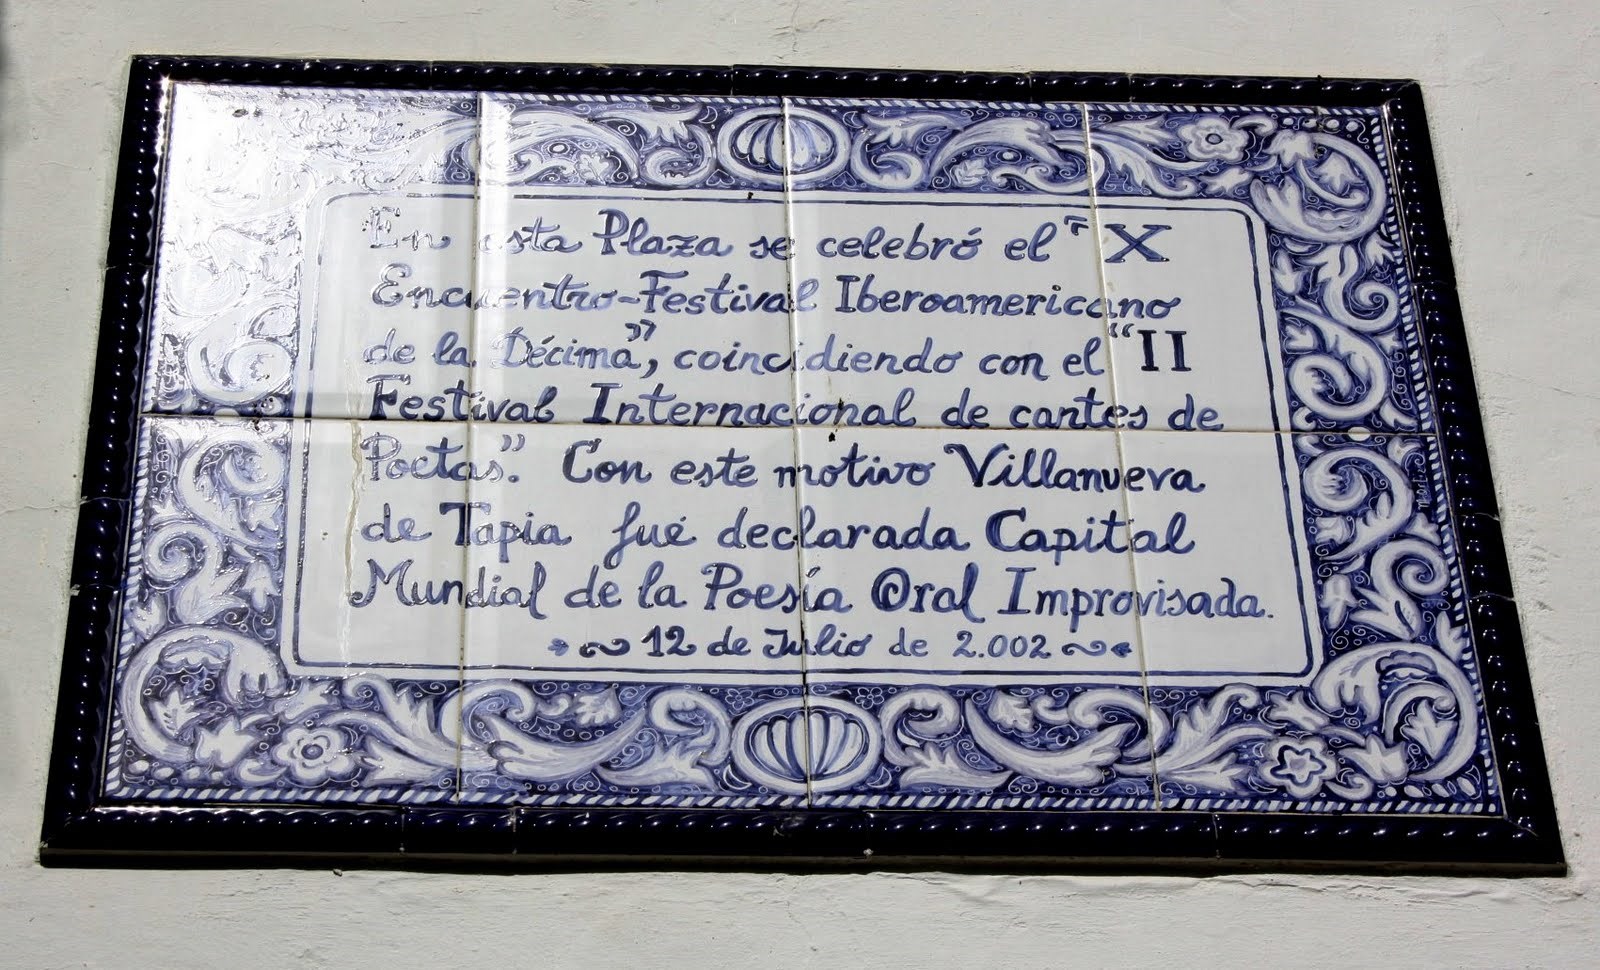 En esta Plaza se celebró el "X
Encuentro-Festival Iberoamericano
de la Décima", coincidiendo con el "II
Festival Internacional de cantes de
Poetas". Con este motivo Villanueva
de Tapia fué declarada Capital
Mundial de la Poesía Oral Improvisada.
12 de Julio de 2.002